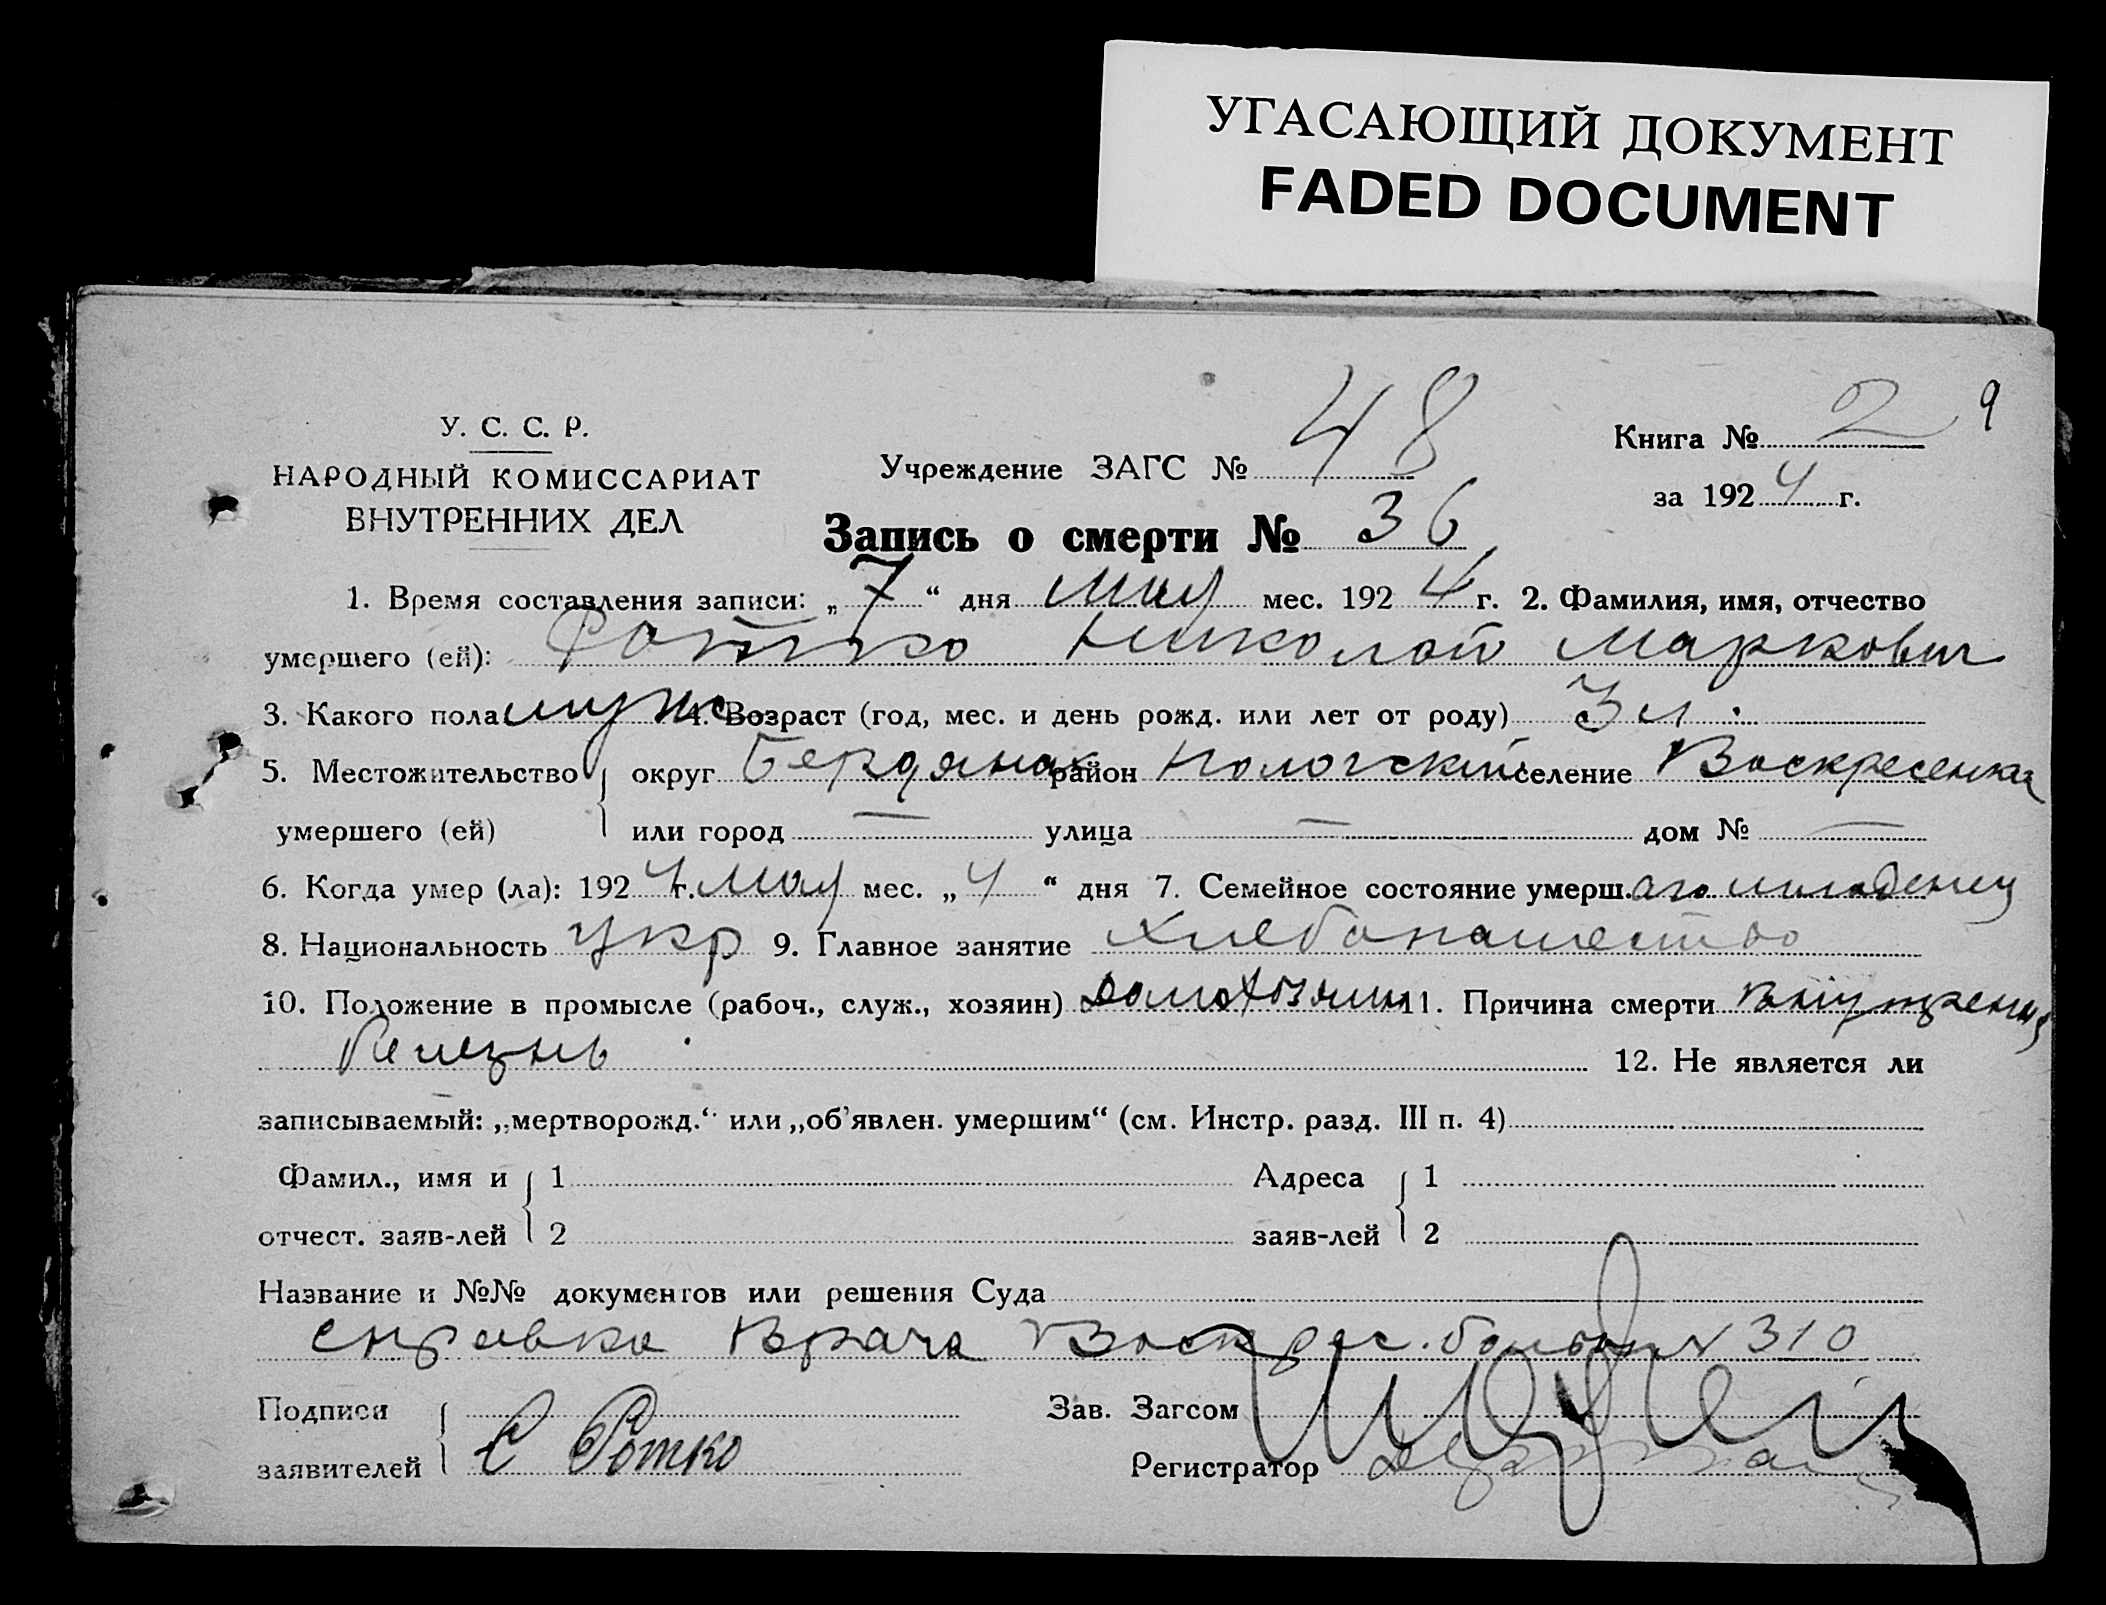 УГАСАЮЩИЙ ДОКУМЕНТ
FADED DOCUMENT
9
У. С. С. Р.
НАРОДНЫЙ КОМИССАРИАТ
ВНУТРЕННИХ ДЕЛ
Учреждение ЗАГС № 48
Книга № 2
за 1924 г.
Запись о смерти № 36
1. Время составления записи: „7“ дня мая мес. 1924 г. 2. Фамилия, имя, отчество
умершего (ей): Ротко Николай Маркович
3. Какого пола муж 4. Возраст (год, мес. и день рожд. или лет от роду) 3 л.
5. Местожительство округ Бердянск район Пологский селение Воскресенка
умершего (ей) или город — улица — дом № —
6. Когда умер (ла): 1924 г. мая мес. „4“ дня 7. Семейное состояние умерш.аго младенец
8. Национальность укр 9. Главное занятие Хлебопашество
10. Положение в промысле (рабоч., служ., хозяин) домохозяин 11. Причина смерти внутренняя
болезнь 12. Не является ли
записываемый: „мертворожд.“ или „об'явлен. умершим“ (см. Инстр. разд. III п. 4)
Фамил., имя и 1 Адреса 1
отчест. заяв-лей 2 заяв-лей 2
Название и №№ документов или решения Суда
справка врача Воскрес. больн N 310
Подписи Зав. Загсом
заявителей С Ротко Регистратор